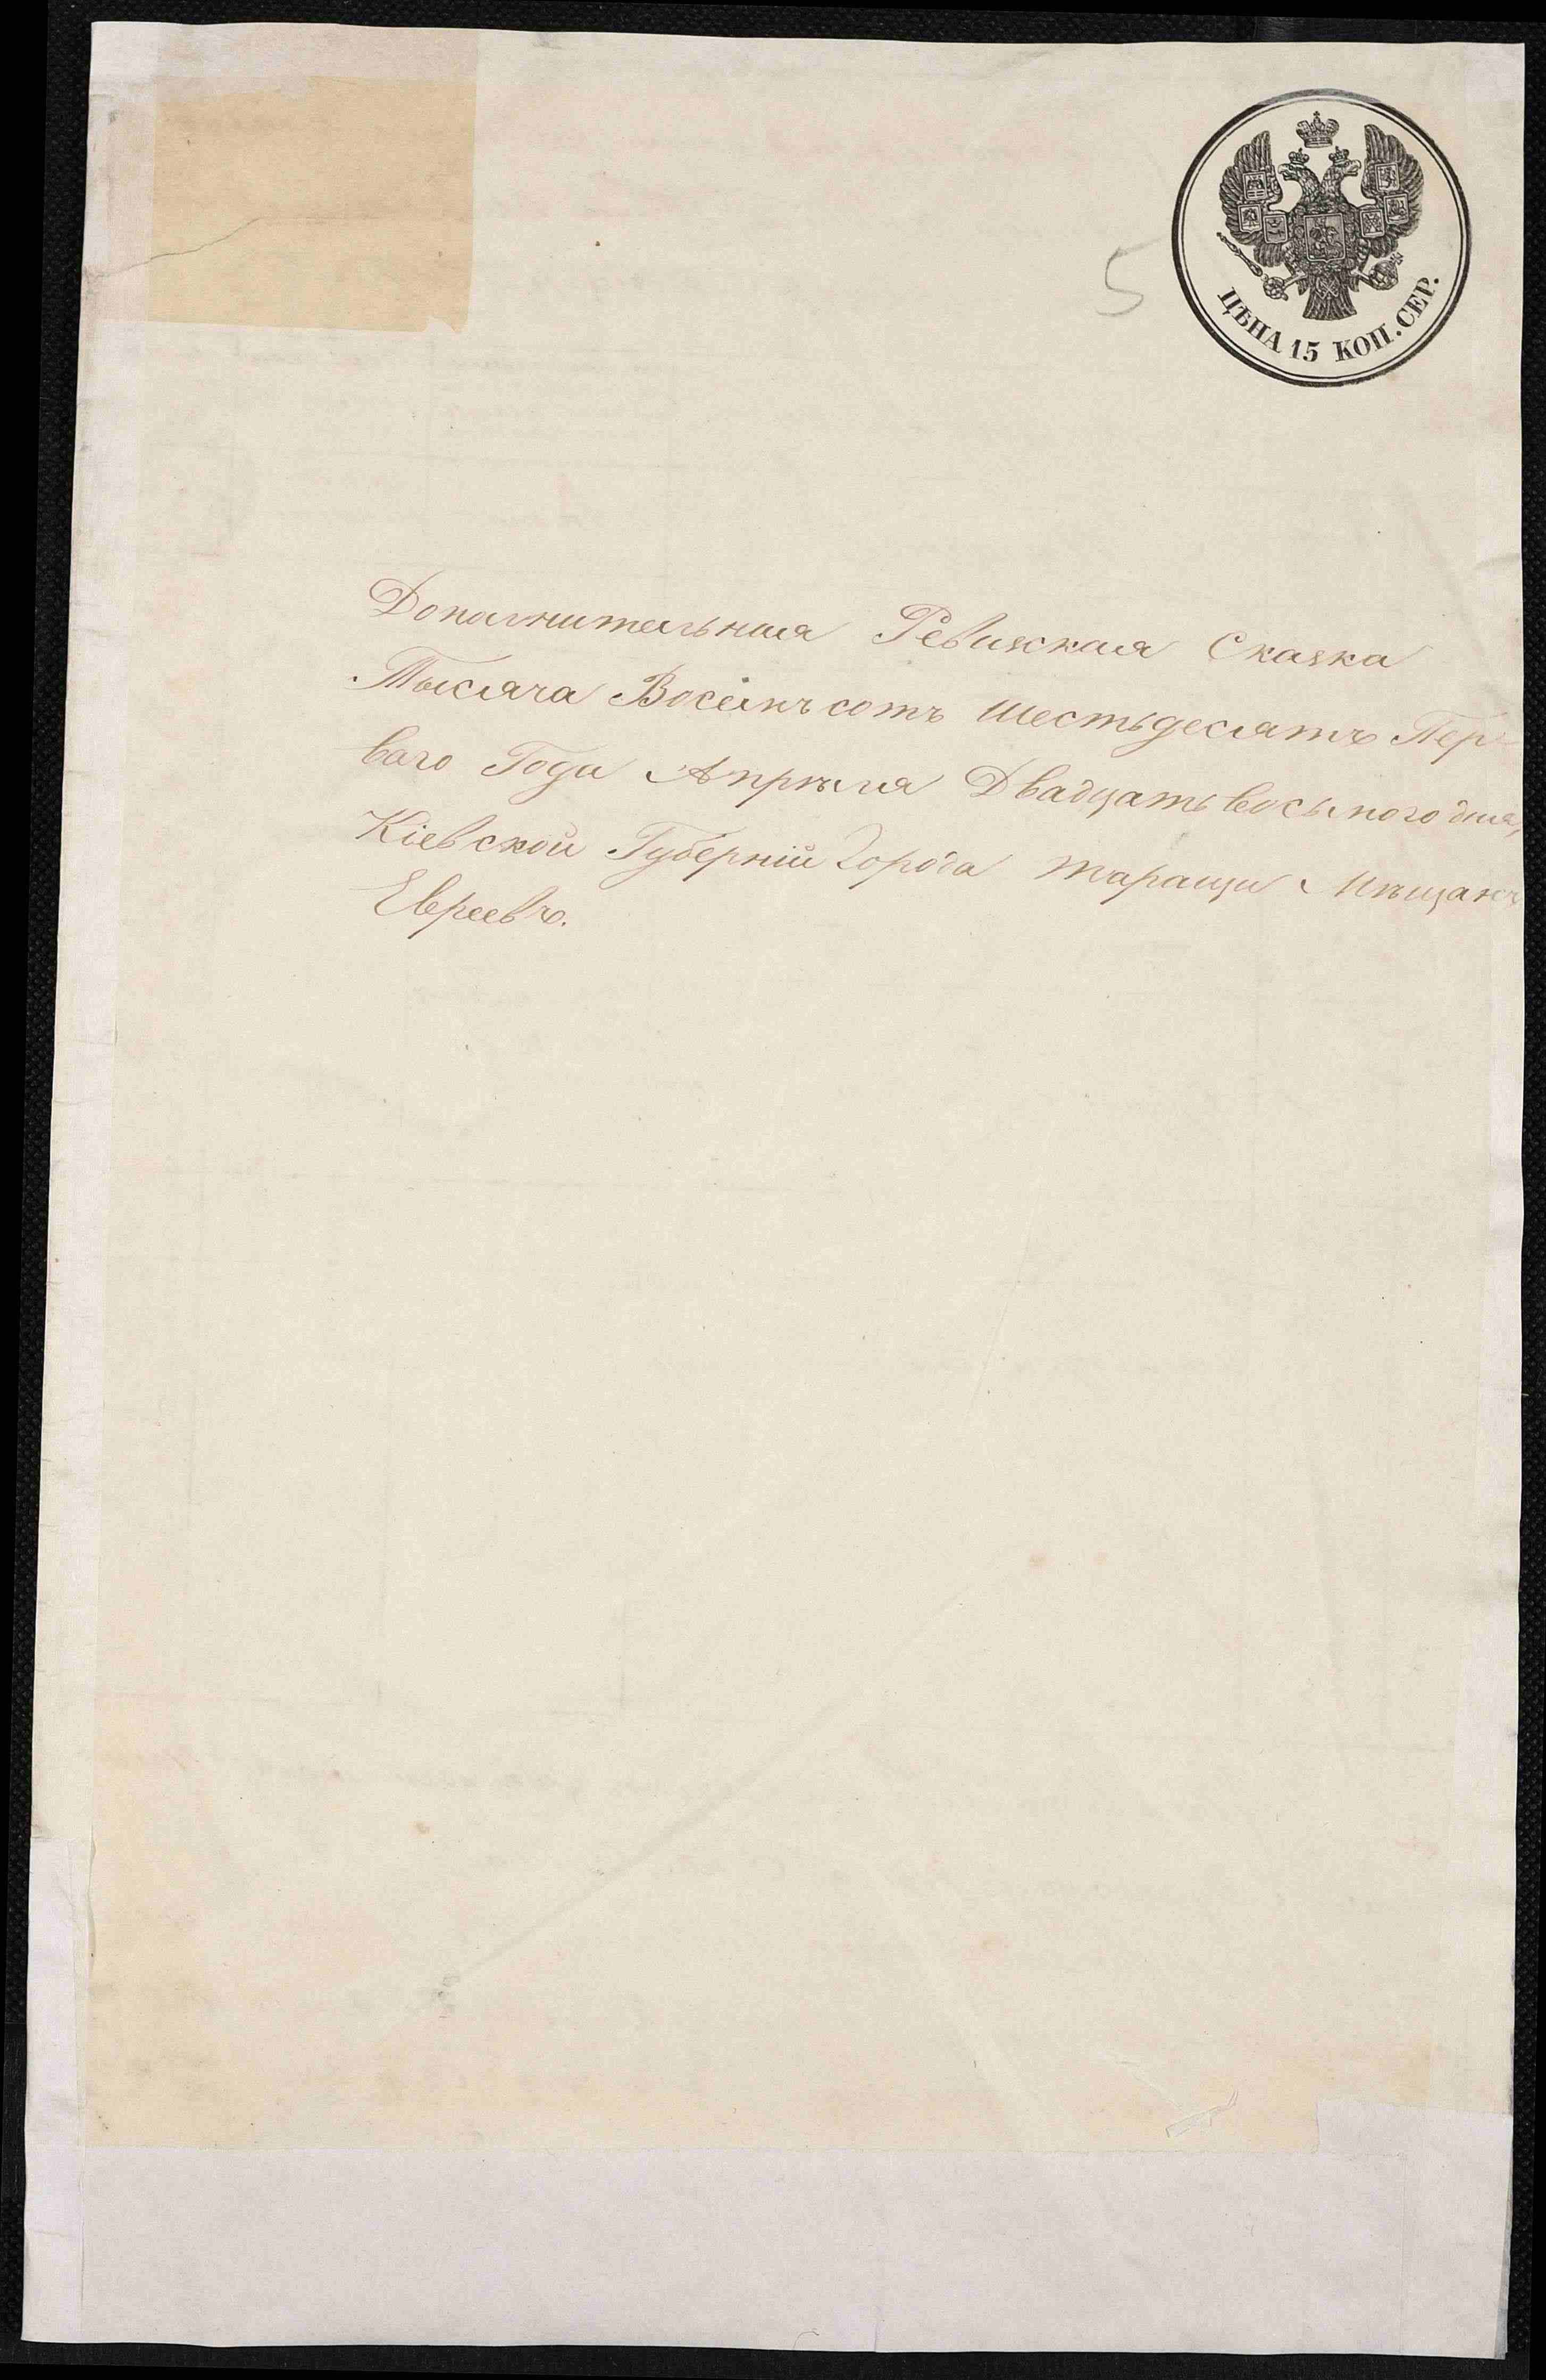 5
ЦѢНА 15 КОП. СЕР.
Дополнительная Ревизская Сказка
Тысяча Восемъсотъ Шестьдесятъ Пер-
ваго Года Апрѣля Двадцать восьмого дня,
Кіевской Губерніи Города Таращи Мѣщанъ
Евреевъ.